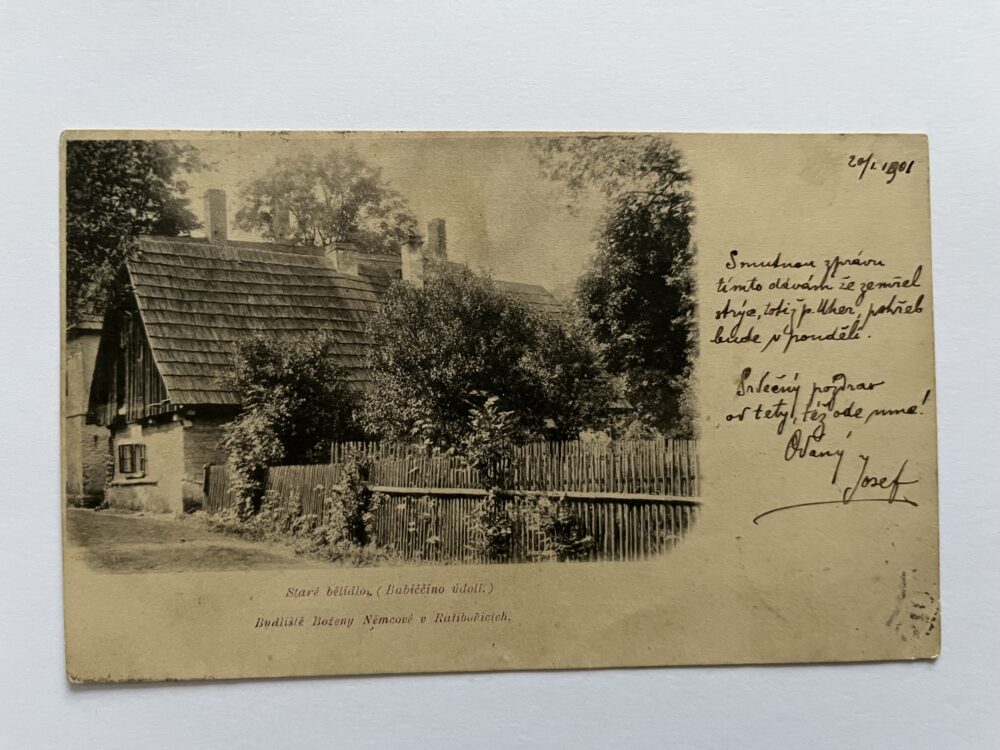 20/1. 1901
Smutnou zprávu
tímto dávám že zemřel
strýc, totiž p. Uher, pohřeb
bude v pondělí.
Srdečný pozdrav
od tety, též ode mne!
Oddaný
Josef
Staré bělidlo, (Babiččino údolí.)
Bydliště Boženy Němcové v Ratibořicích.